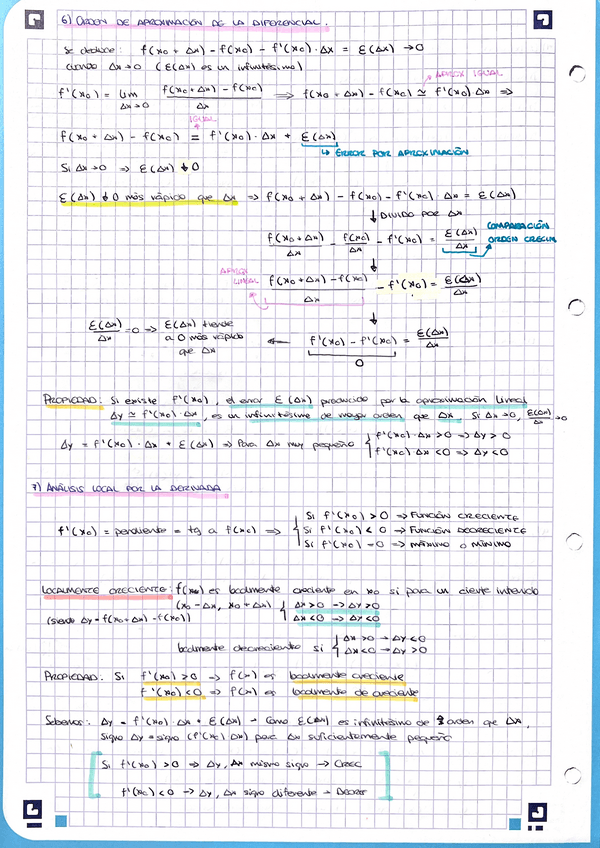 6) ORDEN DE APROXIMACIÓN DE LA DIFERENCIAL.
Se deduce: f(x₀ + Δx) - f(x₀) - f'(x₀)·Δx = ε(Δx) → 0
cuando Δx → 0 (ε(Δx) es un infinitésimo)
APROX IGUAL
f'(x₀) = lim Δx→0 (f(x₀ + Δx) - f(x₀))/Δx ⟹ f(x₀ + Δx) - f(x₀) ≃ f'(x₀)·Δx ⟹
IGUAL
f(x₀ + Δx) - f(x₀) = f'(x₀)·Δx + ε(Δx)
↳ ERROR POR APROXIMACIÓN
Si Δx → 0 ⟹ ε(Δx) → 0
ε(Δx) → 0 más rápido que Δx ⟹ f(x₀ + Δx) - f(x₀) - f'(x₀)·Δx = ε(Δx)
↓ DIVIDO POR Δx
f(x₀ + Δx)/Δx - f(x₀)/Δx - f'(x₀) = ε(Δx)/Δx COMPARACIÓN ORDEN CRECIM
APROX LINEAL (f(x₀ + Δx) - f(x₀))/Δx - f'(x₀) = ε(Δx)/Δx
ε(Δx)/Δx = 0 → ε(Δx) tiende a 0 más rápido que Δx ← f'(x₀) - f'(x₀) = ε(Δx)/Δx
0
PROPIEDAD: Si existe f'(x₀), el error ε(Δx) producido por la aproximación lineal
Δy ≃ f'(x₀)·Δx, es un infinitésimo de mayor orden que Δx. Si Δx → 0, ε(Δx)/Δx → 0
Δy = f'(x₀)·Δx + ε(Δx) ⟹ Para Δx muy pequeño { f'(x₀)·Δx > 0 ⟹ Δy > 0
f'(x₀)·Δx < 0 ⟹ Δy < 0
7) ANÁLISIS LOCAL POR LA DERIVADA
f'(x₀) = pendiente = tg a f(x₀) ⟹ { Si f'(x₀) > 0 ⟹ FUNCIÓN CRECIENTE
Si f'(x₀) < 0 ⟹ FUNCIÓN DECRECIENTE
Si f'(x₀) = 0 ⟹ MÁXIMO o MÍNIMO
LOCALMENTE CRECIENTE: f(x₀) es localmente creciente en x₀ si para un cierto intervalo
(x₀ - Δx, x₀ + Δx) { Δx > 0 → Δy > 0
(siendo Δy = f(x₀ + Δx) - f(x₀)) Δx < 0 → Δy < 0
localmente decreciente si { Δx > 0 → Δy < 0
Δx < 0 → Δy > 0
PROPIEDAD: Si f'(x₀) > 0 ⟹ f(x) es localmente creciente
f'(x₀) < 0 ⟹ f(x) es localmente decreciente
Sabemos: Δy = f'(x₀)·Δx + ε(Δx) - Como ε(Δx) es infinitésimo de orden que Δx,
signo Δy = signo (f'(x₀)·Δx) para Δx suficientemente pequeño
Si f'(x₀) > 0 ⟹ Δy, Δx mismo signo → CREC
f'(x₀) < 0 ⟹ Δy, Δx signo diferente → DECREC